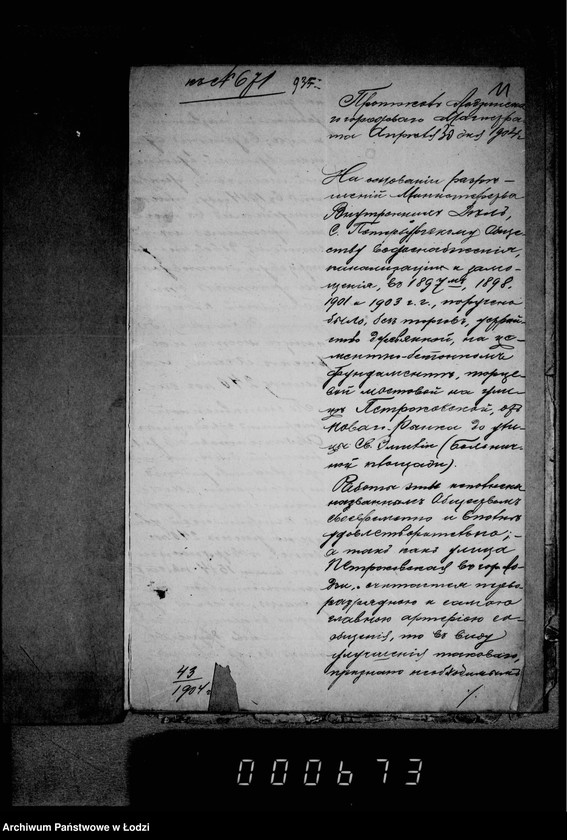 къ № 671
11
Протоколъ Лодзинска-
го городового Магистра-
та Апрѣля дня 1904 г.
На основаніи разрѣ-
шеній Министерства
Внутреннихъ Дѣлъ,
С. Петербургскому Обще-
ству водоснабженія,
канализаціи и замо-
щенія, въ 1897 мъ, 1898,
1901 и 1903 г.г., поручено
было, безъ торговъ, устрой-
ство деревянной, на це-
ментно-бетонномъ
фундаментѣ, торце-
вой мостовой на ули-
цѣ Петроковской, отъ
Новаг. Рынка до ули-
цы Св. Эмиліи (Больнич-
ной площади).
Работы эти исполнены
названнымъ Обществомъ
своевременно и вполнѣ
удовлетворительно;-
а такъ какъ улица
Петроковская въ гор. Ло-
дзи, считается перво-
разрядною и самою
главною артеріею со-
общенія, то въ виду
улучшенія таковой,
признано необходимымъ
43
1904 г.
000673
Archiwum Państwowe w Łodzi